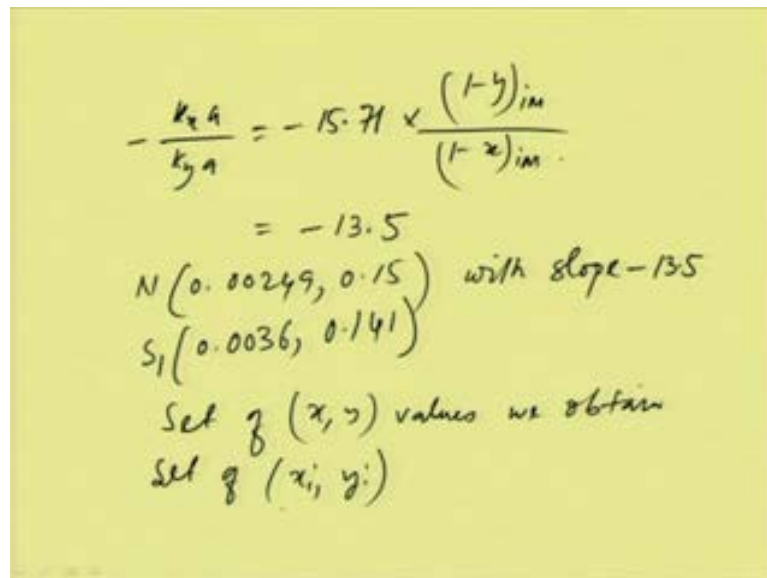 - kxa/kya = - 15.71 × (1-y)iM/(1-x)iM.
= - 13.5
N(0.00249, 0.15) with slope-13.5
S1(0.0036, 0.141)
Set of (x, y) values we obtain
Set of (xi, yi)